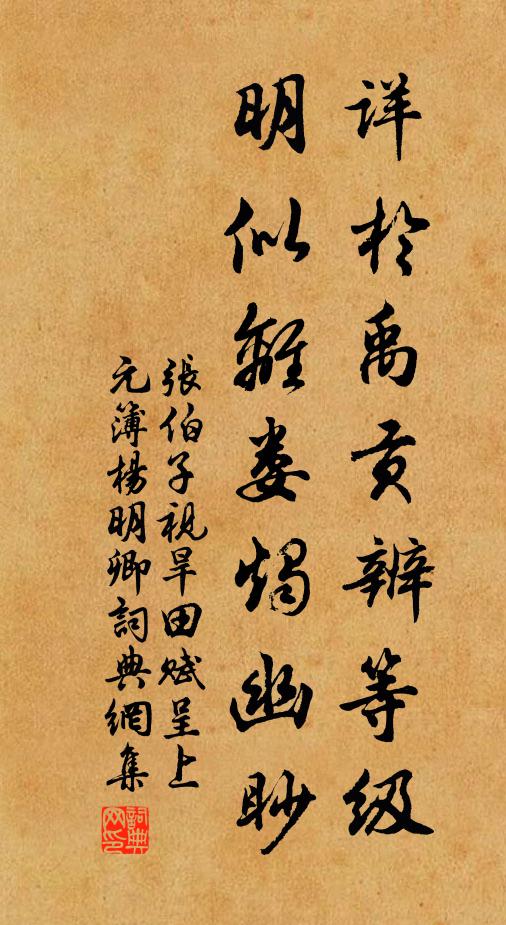 详於禹贡辨等级
明似離娄燭幽眇
張伯子視旱田赋呈上
元簿楊明卿詞典網集
詞典
网印